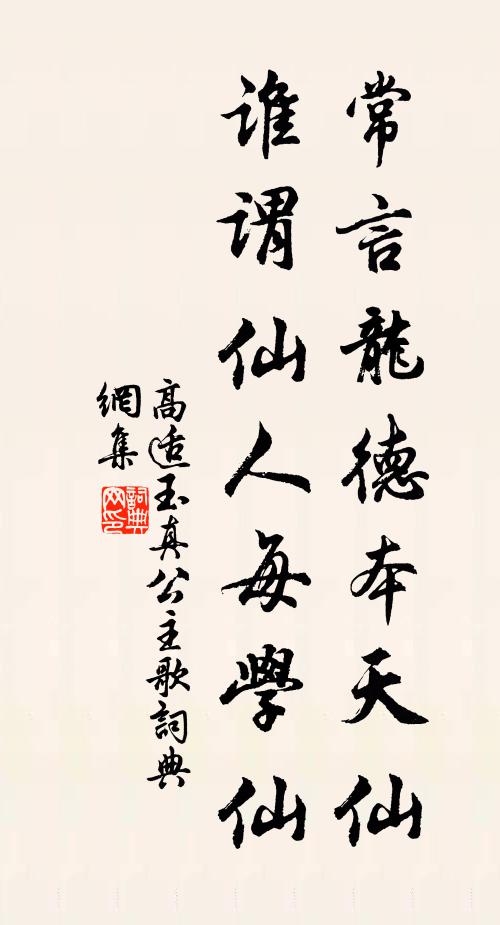 常言龍德本天仙
誰謂仙人每學仙
高适玉真公主歌詞典
網集
詞典
网印